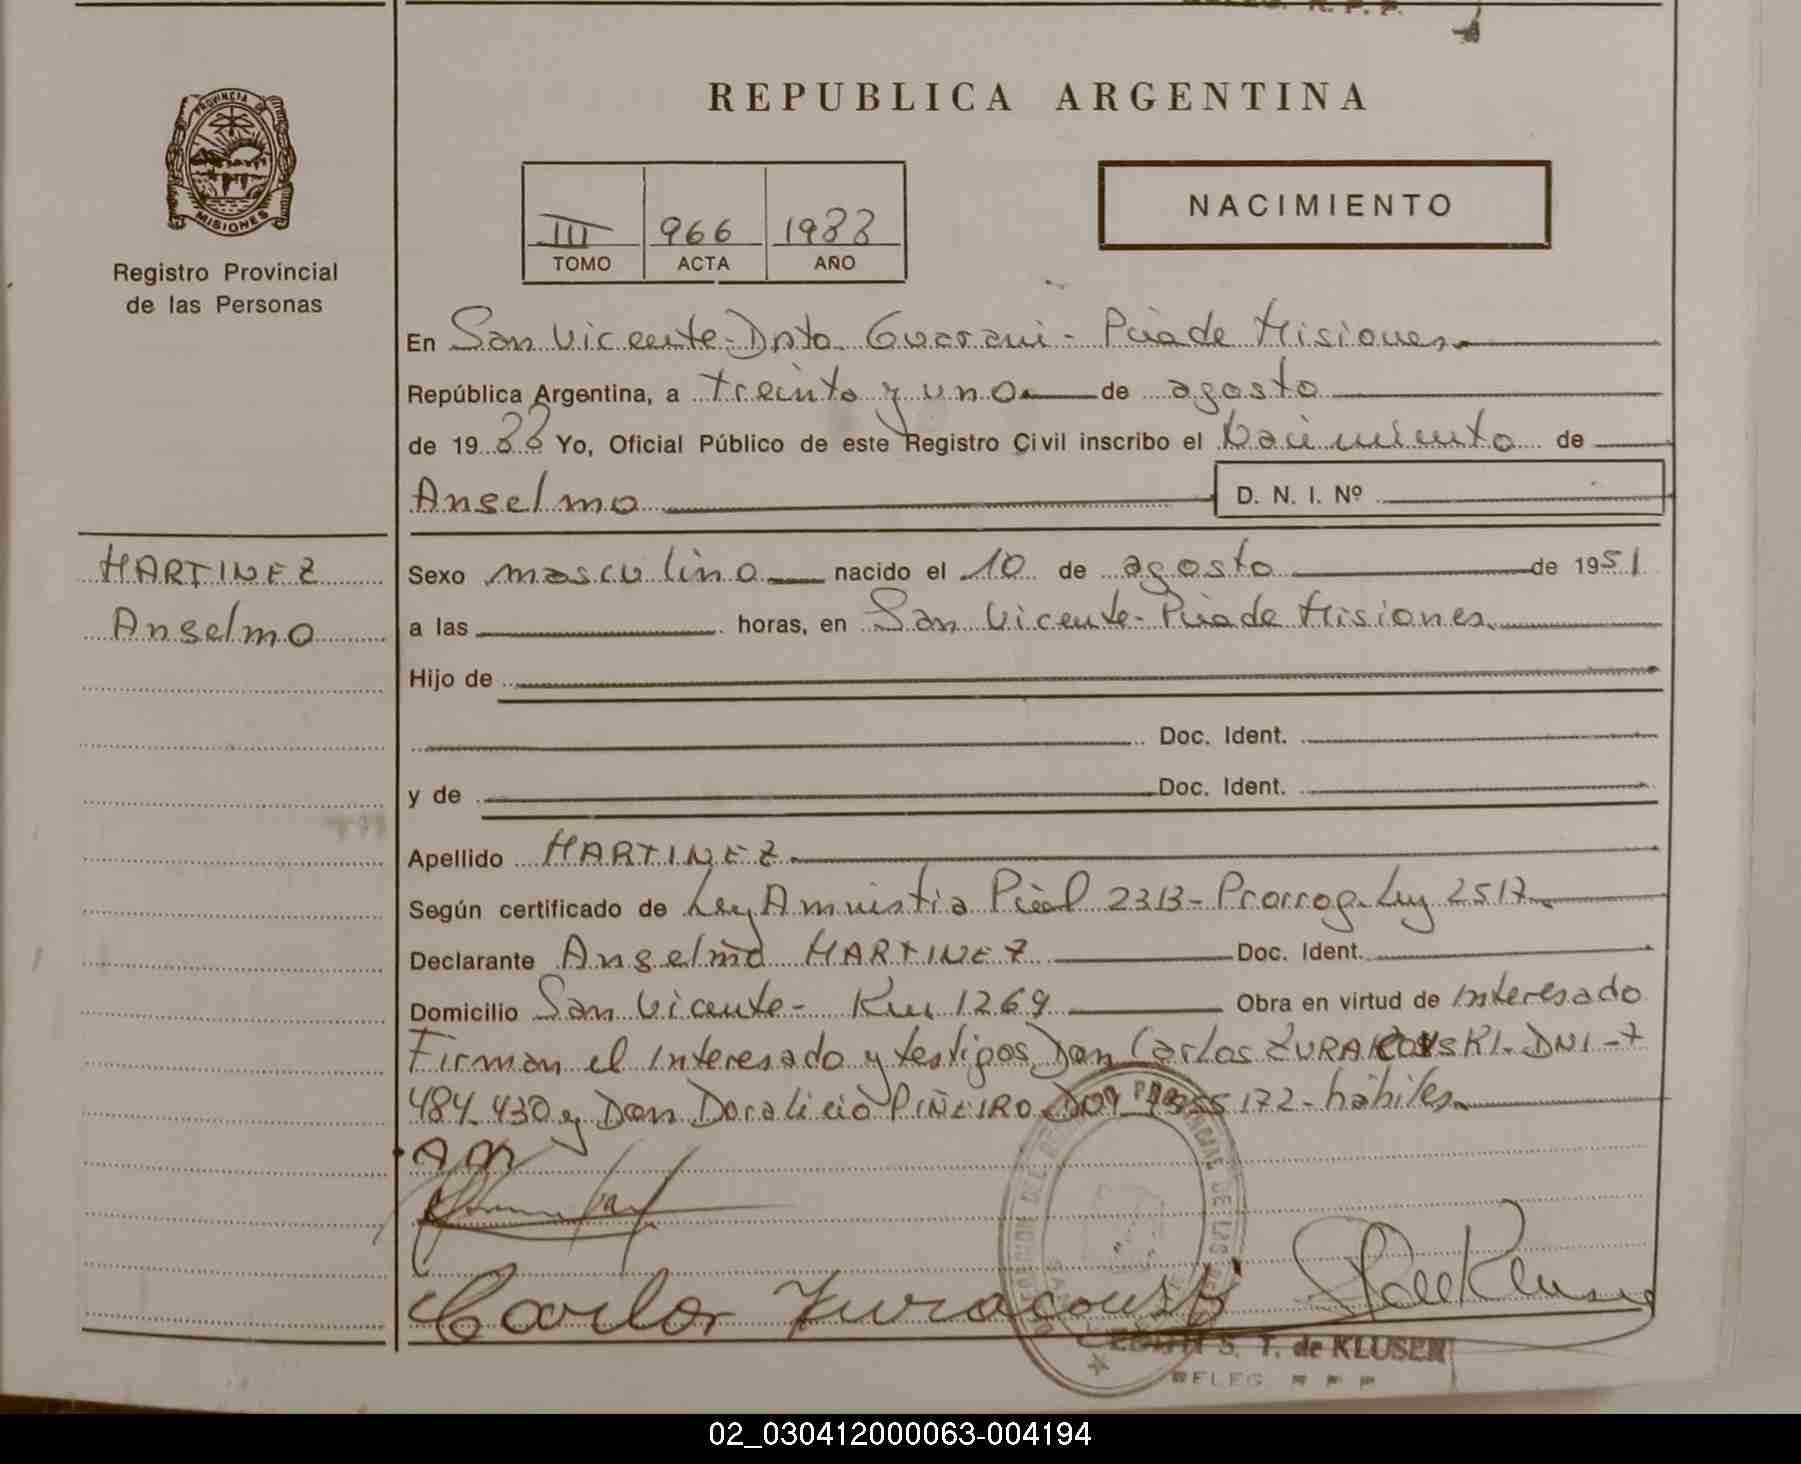 R. P. P.
REPUBLICA ARGENTINA
PROVINCIA DE
MISIONES
Registro Provincial
de las Personas
NACIMIENTO
III 966 1988
TOMO ACTA AÑO
En San Vicente-Dpto Guarani - Pcia de Misiones
República Argentina, a treinta y uno de agosto
de 19 88 Yo, Oficial Público de este Registro Civil inscribo el Nacimiento de
Anselmo D. N. I. Nº
MARTINEZ
Anselmo
Sexo masculino nacido el 10 de agosto de 1951
a las horas, en San Vicente-Pcia de Misiones
Hijo de
Doc. Ident.
y de Doc. Ident.
Apellido MARTINEZ
Según certificado de Ley Amnistia Pcial 2313- Prorrog. Ley 2517
Declarante Anselmo MARTINEZ Doc. Ident.
Domicilio San Vicente- Km 1269 Obra en virtud de Interesado
Firman el Interesado y testigos Don Carlos ZURAKOVSKI- DNI -7
484.430 y Don Doralicio PIÑEIRO 172- hábiles
AM
Carlos
EDITH S. T. de KLUSEN
DELEG. R P P
02_030412000063-004194